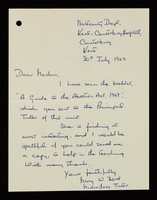 Maternity Dept.
Kent & Canterbury Hospital,
Canterbury
Kent
30th July 1969
Dear Madam,
I have seen the booklet,
"A Guide to the Abortion Act, 1967"
which you sent to the Principal
Tutor of this unit.
She is finding it
most interesting, and I would be
grateful if you could send me
a copy, to help in the teaching
With many thanks.
Yours faithfully
Mary
Midwifery Tutor